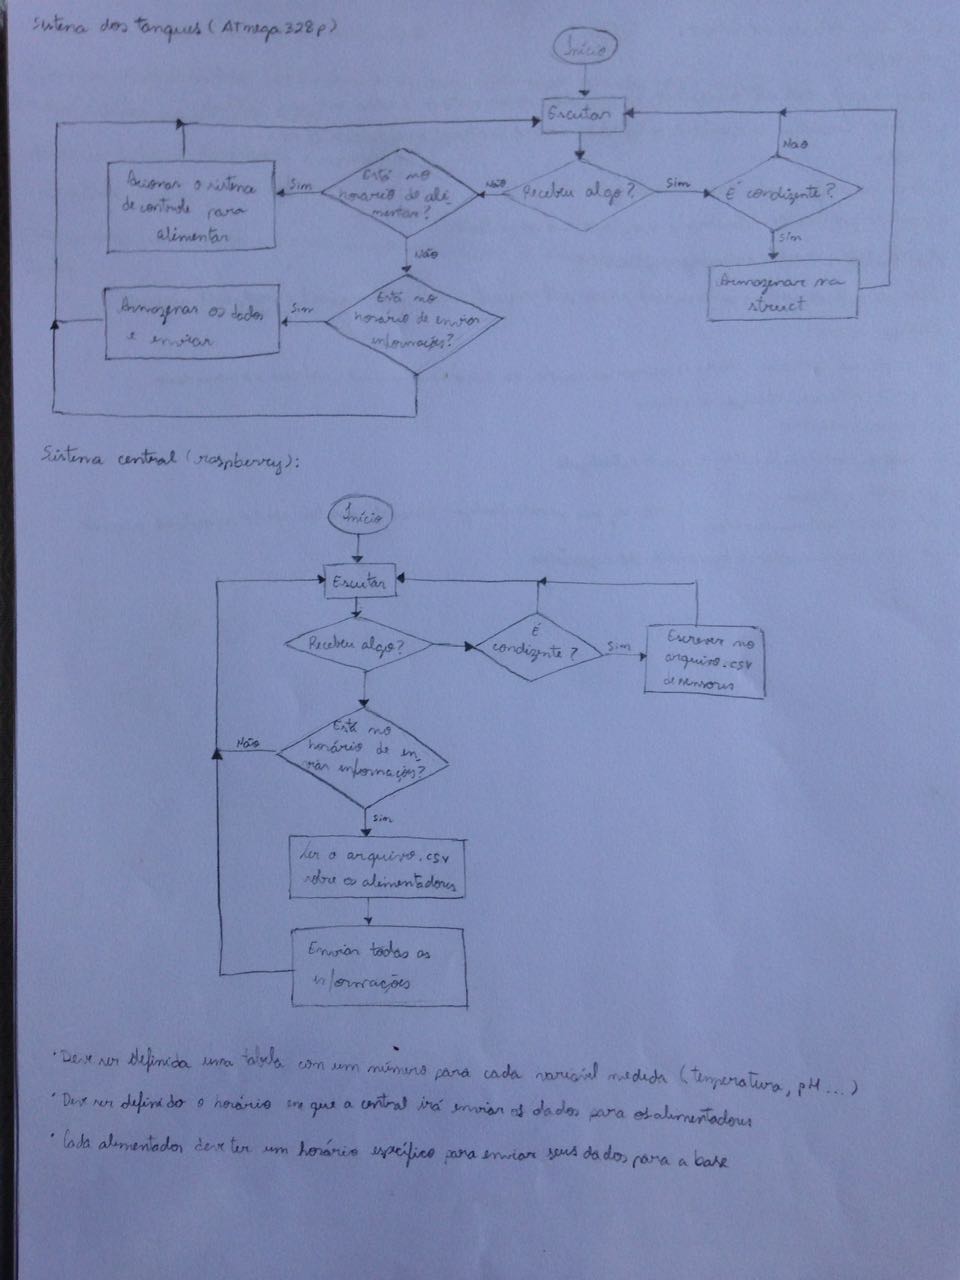 Sistema dos tanques (ATmega328p)
Início
Escutar
Não
Acionar o sistema
de controle para
alimentar
Sim
Está no
horário de ali-
mentar?
Não
Recebeu algo?
Sim
É condizente?
Não
Sim
Armazenar os dados
e enviar
Sim
Está no
horário de enviar
informações?
Armazenar na
struct
Sistema central (raspberry):
Início
Escutar
Recebeu algo?
É
condizente?
Sim
Escrever no
arquivo.csv
de sensores
Não
Está no
horário de en-
viar informações?
Sim
Ler o arquivo.csv
sobre os alimentadores
Enviar todas as
informações
· Deve ser definida uma tabela com um número para cada variável medida (temperatura, pH...)
· Deve ser definido o horário em que a central irá enviar os dados para os alimentadores
· Cada alimentador deve ter um horário específico para enviar seus dados para a base